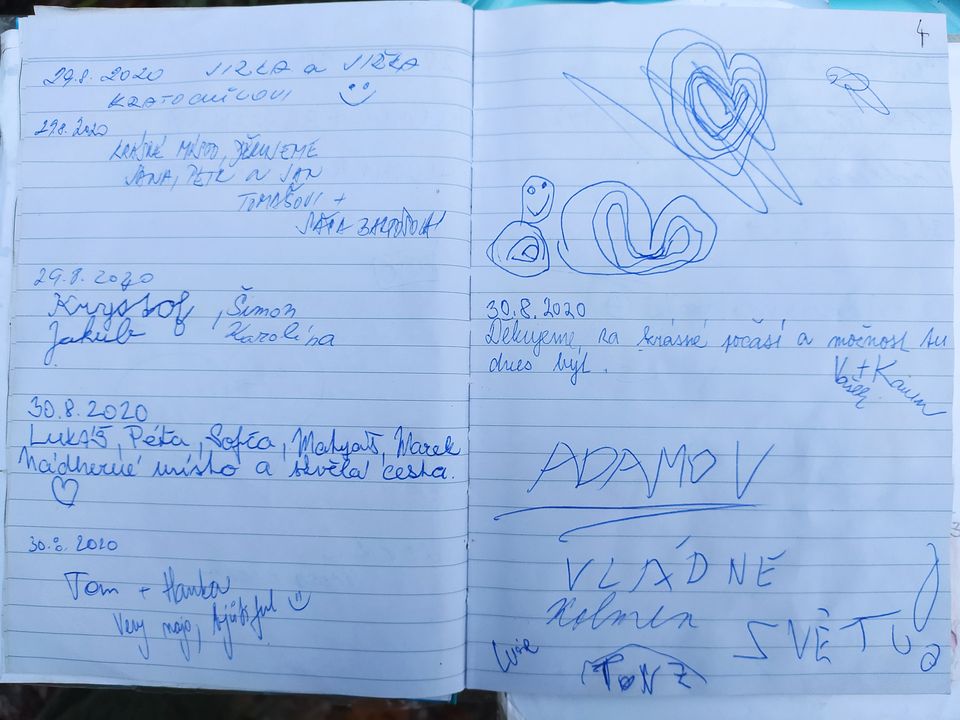 29.8. 2020 JIRKA a JIŘKA
KRATOCHVÍLOVI
29.8. 2020
KRÁSNÉ MÍSTO, DĚKUJEME
JANA, PETR A JAN
TOMÁŠOVI +
BARTOŠOVÁ
29.8. 2020
Kryštof, Šimon
Jakub Karolína
30.8.2020
Lukáš, Péťa, Sofča, Matyáš, Marek
Nádherné místo a skvělá cesta.
30.8. 2020
Tom + Hanka
Very majo, bjútiful
4
30.8.2020
Děkujeme za krásné počasí a možnost tu
dnes být.
Vašek +
ADAMOV
VLÁDNE
SVĚTU
TONZ